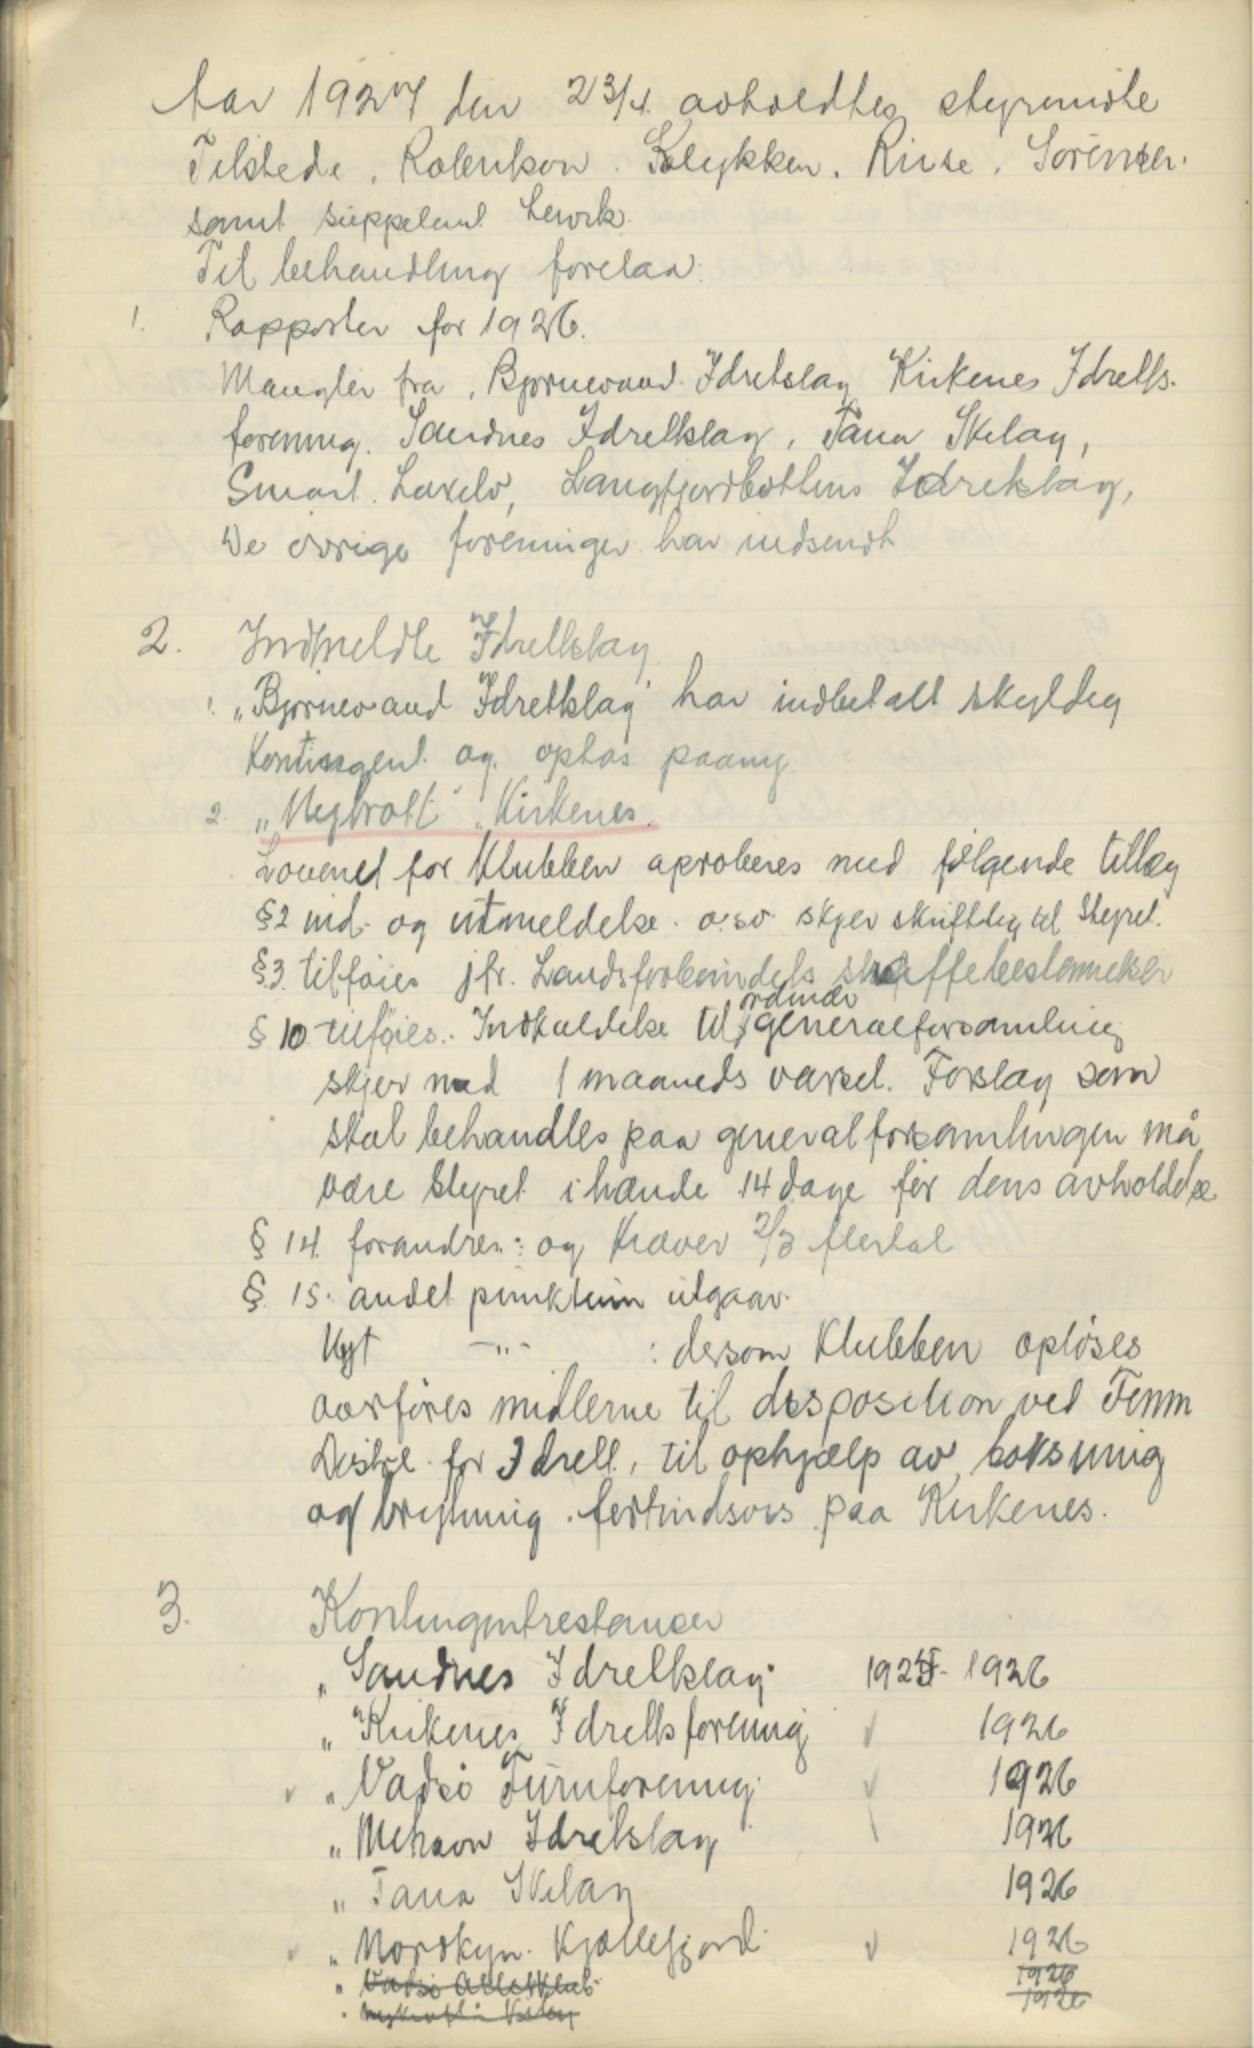 Aar 1927 den 23/4 avholdtes styremöte
Tilstede. Robertson. Klykken. Riise. Sörensen.
samt suppleant Lervik.
Til behandling forelaa:
1. Rapporter for 1926.
Mangler fra, Bjørnevand Idretslag Kirkenes Idretts-
forening. Sandnes Idrettslag, Tana Skilag,
Smart. Lakselv, Langfjordbottens Idretslag,
De övrige foreninger har indsendt
2. Indmeldte Idrettslag
1. „Bjørnevand Idrettslag" har indbetalt skyldig
Kontingent og optas paany
2. „Nybrott" „Kirkenes.
Lovene for Klubben aproberes med følgende tillæg
§2 ind- og utmeldelse o.s.v. skjer skriftlig til Styret.
§3. tilföies jfr. Landsforbundets straffebestemmelser
§ 10 tilföies.. Indkaldelse til ordinær generalforsamling
skjer med 1 maaneds varsel. Forslag som
skal behandles paa generalforsamlingen må
være Styret ihænde 14 dage før dens avholdelse
§ 14. forandres: og Kræver 2/3 flertal
§ 15. andet punktum utgaar.
Nyt —„— : dersom Klubben oplöses
overföres midlerne til disposition ved Finnm
Distr. for Idrett, til ophjælp av boksning
og brytning. fortrindsvis paa Kirkenes.
3. Kontingentrestanser
„ Sandnes Idrettslag 1925- 1926
„ Kirkenes Idrettsforening √ 1926
√ „ Vadsö Turnforening √ 1926
„ Mehavn Idretslag 1926
„ Tana Skilag 1926
√ „ Nordkyn. Kjøllefjord √ 1926
„ Vadsö Atletklub 1926
1926